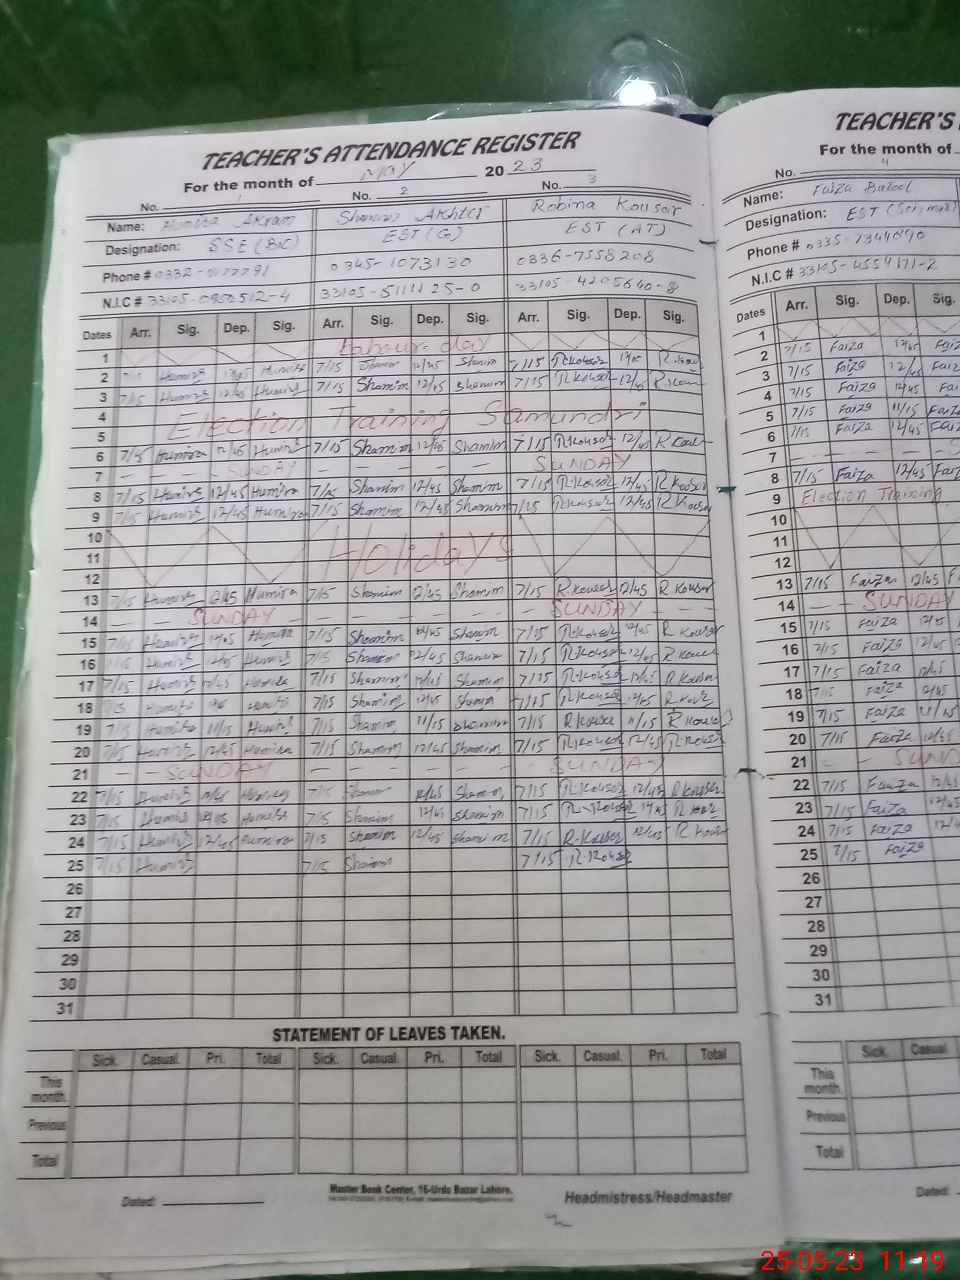 TEACHER'S ATTENDANCE REGISTER
For the month of May 2023
No. 1 No. 2 No. 3
Name: Humira Akram Shamim Akhter Robina Kousar
Designation: SSE (B/C) EST (G) EST (AT)
Phone # 0332- 0345-1073130 0336-7558208
N.I.C # 33105-5111125-0 33105-4205640-8
Dates Arr. Sig. Dep. Sig. Arr. Sig. Dep. Sig. Arr. Sig. Dep. Sig.
1 Labour day
2 7/15 Humira 12/45 Humira 7/15 Shamim 12/45 Shamim 7/15 R.Kousar 12/45 R.Kousar
3 7/15 Humira 12/45 Humira 7/15 Shamim 12/45 Shamim 7/15 R.Kousar 12/45 R.Kousar
4 Election Training Samundri
5
6 7/15 Humira 12/45 Humira 7/15 Shamim 12/45 Shamim 7/15 R.Kousar 12/45 R Kousar
7 - - SUNDAY - - - - - SUNDAY -
8 7/15 Humira 12/45 Humira 7/15 Shamim 12/45 Shamim 7/15 R.Kousar 12/45 R Kousar
9 7/15 Humira 12/45 Humira 7/15 Shamim 12/45 Shamim 7/15 R.Kousar 12/45 R Kousar
10
11 Holidays
12
13 7/15 Humira 12/45 Humira 7/15 Shamim 12/45 Shamim 7/15 R.Kousar 12/45 R Kousar
14 - - SUNDAY - - - - - SUNDAY - -
15 7/15 Humira 12/45 Humira 7/15 Shamim 12/45 Shamim 7/15 R.Kousar 12/45 R Kousar
16 7/15 Humira 12/45 Humira 7/15 Shamim 12/45 Shamim 7/15 R.Kousar 12/45 R Kousar
17 7/15 Humira 12/45 Humira 7/15 Shamim 12/45 Shamim 7/15 R.Kousar 12/45 R Kousar
18 7/15 Humira Humira 7/15 Shamim 12/45 Shamim 7/15 R.Kousar 12/45 R.Kousar
19 7/15 Humira 11/15 Humira 7/15 Shamim 11/15 Shamim 7/15 R.Kousar 11/15 R Kousar
20 7/15 Humira 12/45 Humira 7/15 Shamim 12/45 Shamim 7/15 R.Kousar 12/45 R.Kousar
21 - - SUNDAY - - - - - SUNDAY
22 7/15 Humira 12/45 7/15 Shamim 12/45 Shamim 7/15 R.Kousar 12/45 R Kousar
23 7/15 Humira 12/45 Humira 7/15 Shamim 12/45 Shamim 7/15 R.Kousar 12/45 R Kousar
24 7/15 Humira 12/45 Humira 7/15 Shamim 12/45 Shamim 7/15 R.Kousar 12/45 R Kousar
25 7/15 Humira 7/15 Shamim 7/15 R.Kousar
26
27
28
29
30
31
STATEMENT OF LEAVES TAKEN.
Sick. Casual. Pri. Total Sick. Casual. Pri. Total Sick. Casual. Pri. Total
This month.
Previous
Total
Dated:
Master Book Center, 16-Urdu Bazar Lahore.
Headmistress/Headmaster
TEACHER'S
For the month of
No. 4
Name: Faiza Batool
Designation: EST (Sci-Mat)
Phone # 0335-7344090
N.I.C # 33105-4554171-2
Dates Arr. Sig. Dep. Sig.
1
2 7/15 Faiza 12/45
3 7/15 Faiza 12/45
4 7/15 Faiza 12/45
5 7/15 Faiza 11/15
6 7/15 Faiza 12/45
7 - - -
8 7/15 Faiza 12/45
9 Election Training
10
11
12
13 7/15 Faiza 12/45
14 - - SUNDAY
15 7/15 Faiza 12/45
16 7/15 Faiza 12/45
17 7/15 Faiza 12/45
18 7/15 Faiza 12/45
19 7/15 Faiza 11/15
20 7/15 Faiza 12/45
21 - -
22 7/15 Faiza 12/45
23 7/15 Faiza 12/45
24 7/15 Faiza
25 7/15 Faiza
26
27
28
29
30
31
Sick. Casual
This month.
Previous
Total
Dated:
25-05-23 11:19